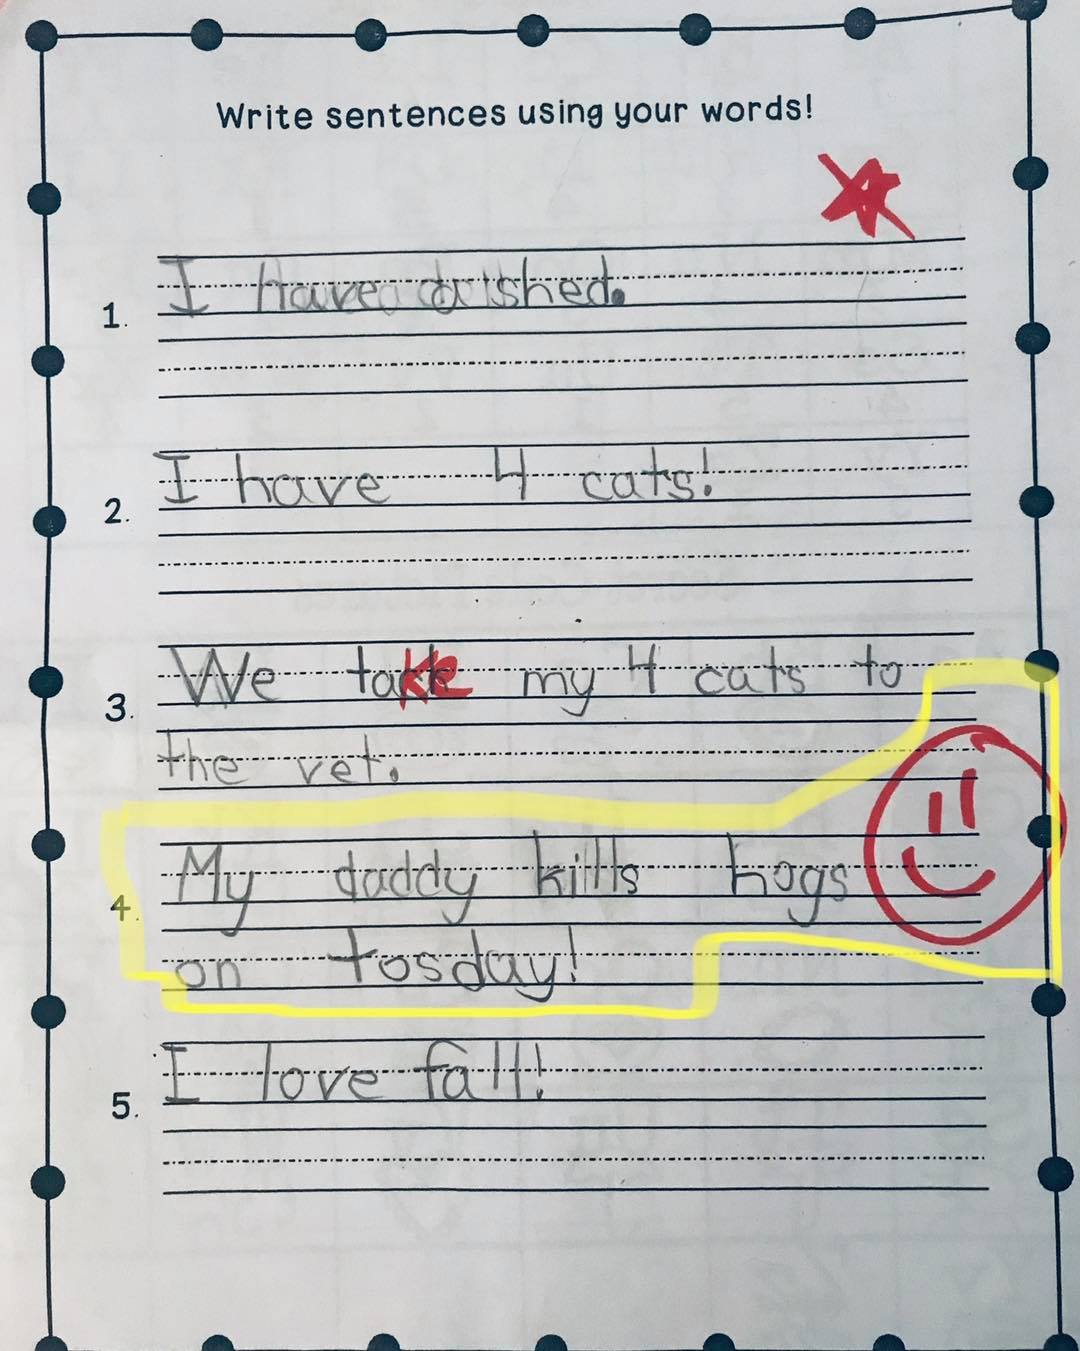 Write sentences using your words!
1. I have a shed.
2. I have 4 cats!
3. We take my 4 cats to
the vet.
4. My daddy kills hogs
on tosday!
5. I love fall!